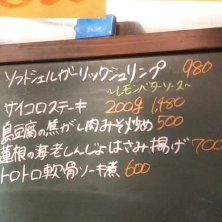 ソフトシェルガーリックシュリンプ 980
〜レモンバターソース〜
サイコロステーキ 200g 1,480
島豆腐の焦がし肉みそ炒め 500
蓮根の海老しんじょはさみ揚げ 700
トロトロ軟骨ソーキ煮 600